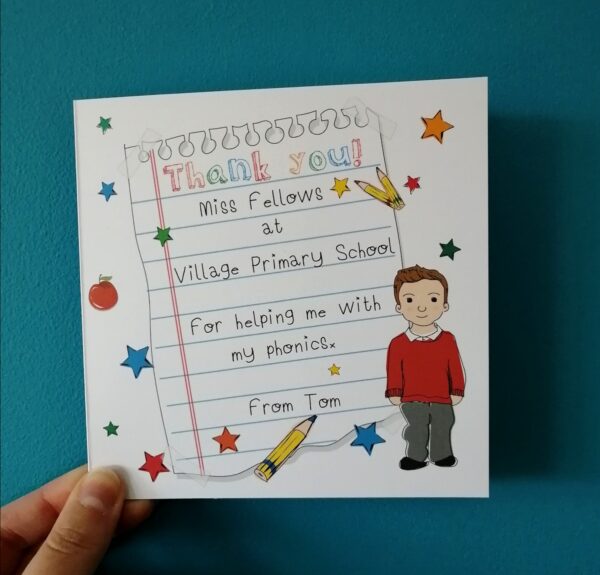 Thank you!
Miss Fellows
at
Village Primary School
For helping me with
my phonics x
From Tom